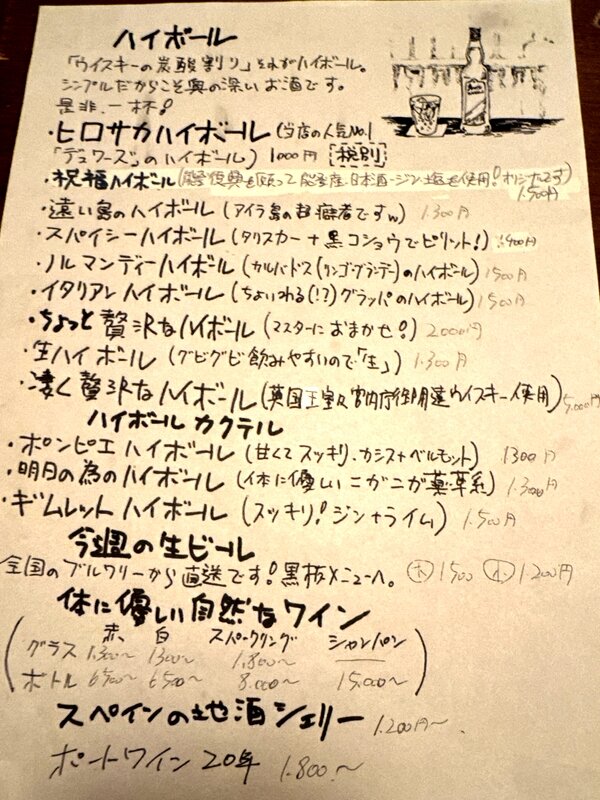 ハイボール
「ウイスキーの炭酸割り」それがハイボール。
シンプルだからこそ奥の深いお酒です。
是非、一杯!
・ヒロサカハイボール(当店の人気No.1
「デュワーズ」のハイボール) 1000円 [税別]
・祝福ハイボール(能登復興を願って能登産、日本酒・ジン・塩を使用!オリジナルです) 1,500円
・遠い島のハイボール(アイラ島の超癖者ですw) 1,300円
・スパイシーハイボール(タリスカー+黒コショウでピリット!) 1,400円
・ノルマンディーハイボール(カルバドス(リンゴ・ブランデー)のハイボール) 1,500円
・イタリアンハイボール(ちょいわる(!?)グラッパのハイボール) 1,500円
・ちょっと贅沢なハイボール(マスターにおまかせ!) 2000円
・生ハイボール(グビグビ飲みやすいので「生」) 1,300円
・凄く贅沢なハイボール(英国王室&宮内庁御用達ウイスキー使用) 5,000円
ハイボールカクテル
・ポンピエハイボール(甘くてスッキリ、カシス+ベルモット) 1300円
・明日の為のハイボール(体に優しいニガニガ薬草系) 1,300円
・ギムレットハイボール(スッキリ!ジン+ライム) 1,500円
今週の生ビール
全国のブルワリーから直送です!黒板メニューへ。 大 1500 小 1,200円
体に優しい自然なワイン
赤 白 スパークリング シャンパン
グラス 1,300〜 1300〜 1,800〜 ―
ボトル 6500〜 6500〜 8,000〜 15,000〜
スペインの地酒シェリー 1,200円〜
ポートワイン20年 1,800〜